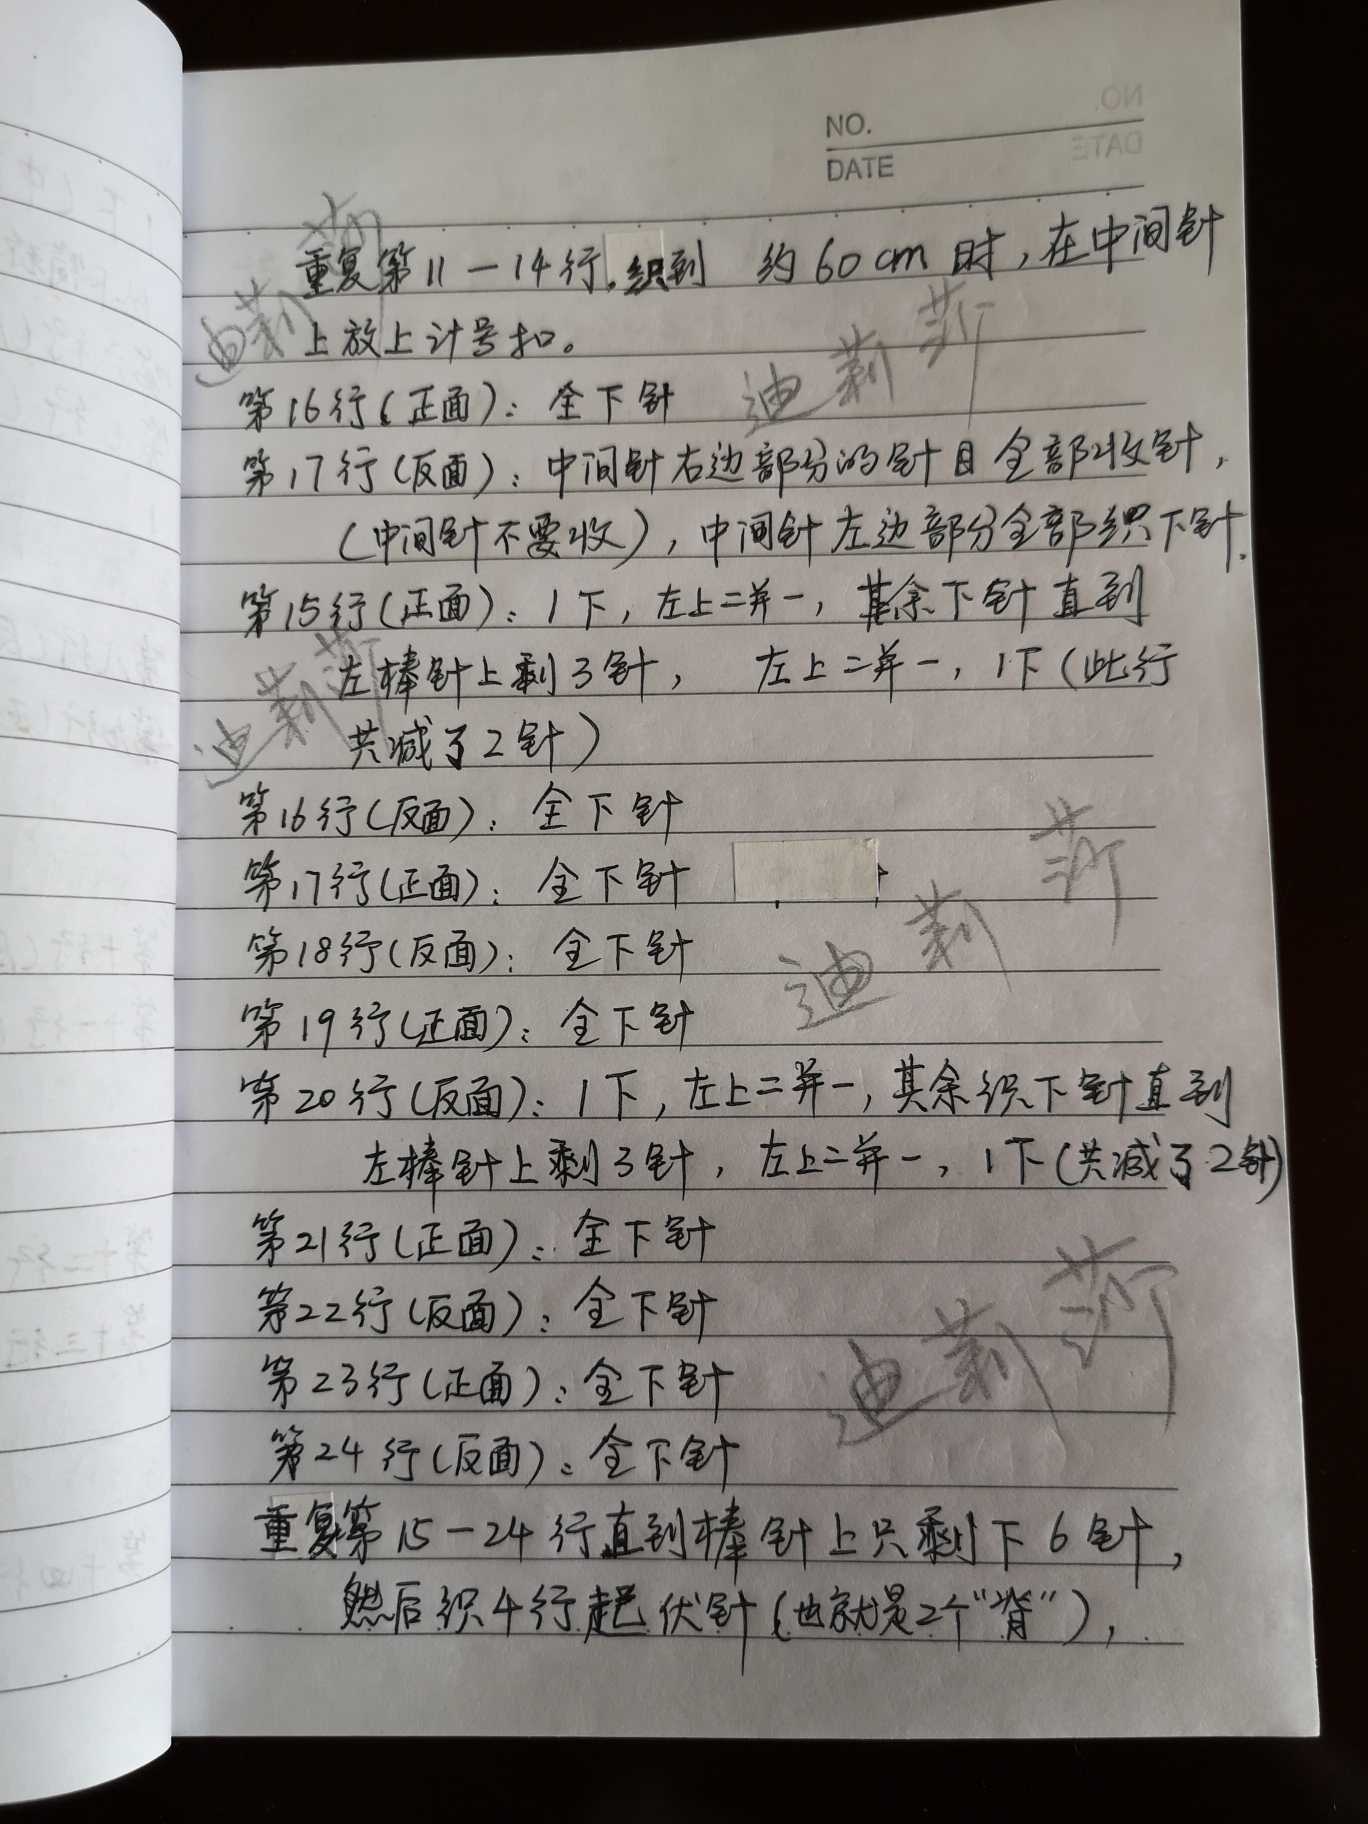 NO.
DATE
重复第11－14行,织到 约60cm时,在中间针
上放上计号扣。
第16行(正面): 全下针
第17行(反面): 中间针右边部分的针目全部收针,
(中间针不要收),中间针左边部分全部织下针.
第15行(正面): 1下,左上二并一, 其余下针直到
左棒针上剩3针, 左上二并一, 1下(此行
共减了2针)
第16行(反面): 全下针
第17行(正面): 全下针
第18行(反面): 全下针
第19行(正面): 全下针
第20行(反面): 1下,左上二并一,其余织下针直到
左棒针上剩3针,左上二并一,1下(共减了2针)
第21行(正面): 全下针
第22行(反面): 全下针
第23行(正面): 全下针
第24行(反面): 全下针
重复第15－24行直到棒针上只剩下6针,
然后织4行起伏针(也就是2个“背”),
迪莉莎
迪莉莎
迪莉莎
迪莉莎
迪莉莎